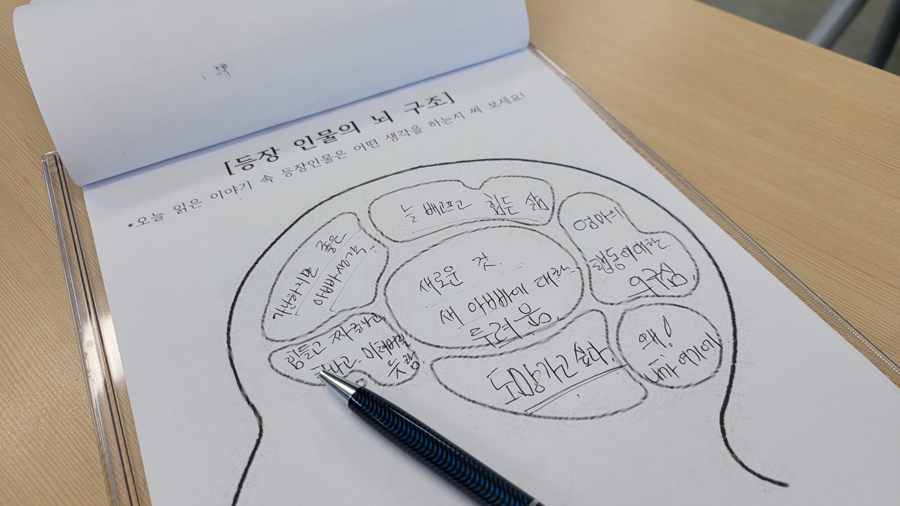 [등장 인물의 뇌 구조]
•오늘 읽은 이야기 속 등장인물은 어떤 생각을 하는지 써 보세요!
늘 베풀고 힘든 삶
가난하지만 좋은
아빠생각.
새로운 것.
새 아빠에 대한
두려움.
엄마의
행동에대한
의구심
힘들고
도망가고 싶다.
왜!